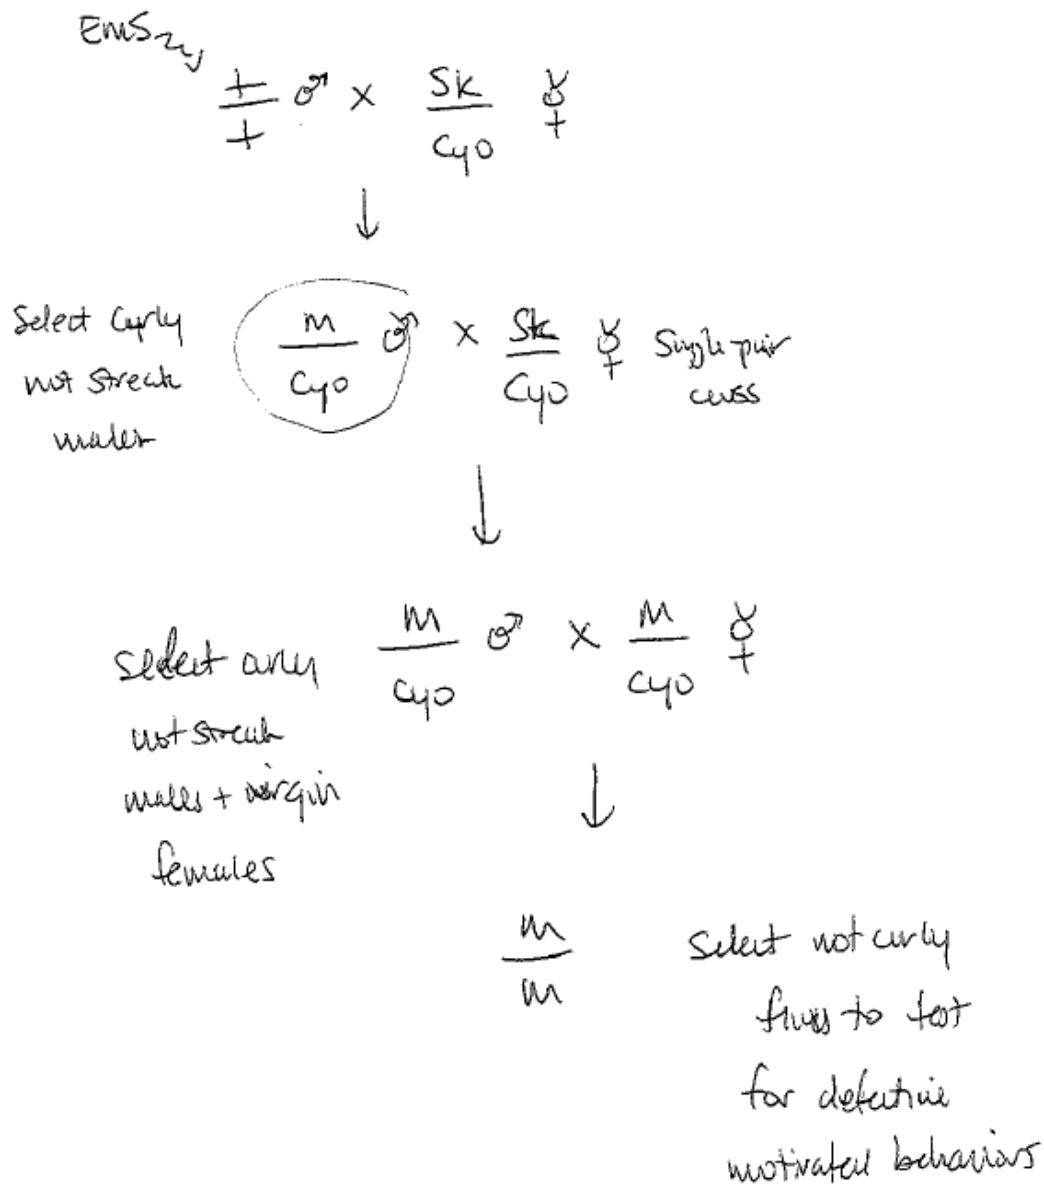 EMS
+ ♂ x Sk ☿
+ CyO
↓
Select Curly
not streak
males
m ♂ x Sk ☿
CyO CyO
Single pair
cross
↓
select curly
not streak
males + virgin
females
m ♂ x m ☿
CyO CyO
↓
m
m
Select not curly
flies to test
for defective
motivated behaviors